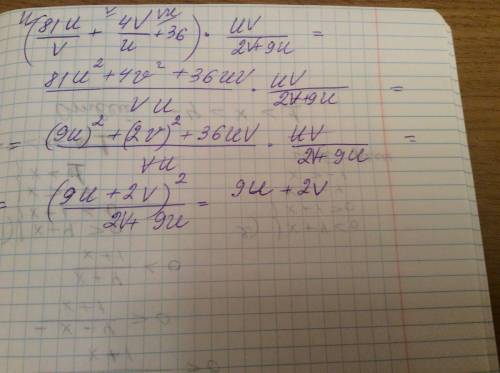 (81u/v + 4v/u + 36) · uv/(2v+9u) =
(81u² + 4v² + 36uv)/(vu) · uv/(2v+9u) =
= ((9u)² + (2v)² + 36uv)/(vu) · uv/(2v+9u) =
= (9u + 2v)²/(2v+9u) = 9u + 2v